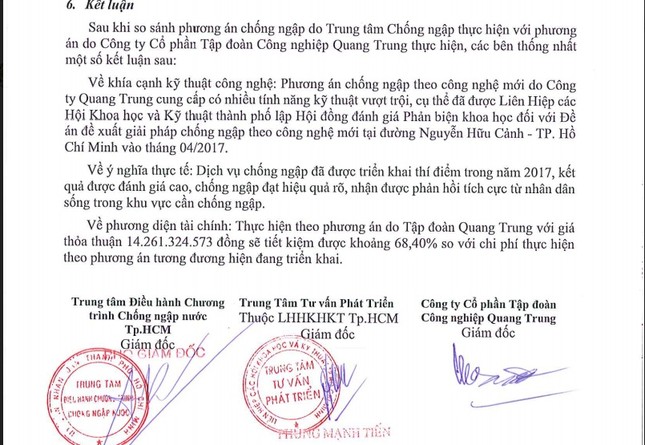 6. Kết luận
Sau khi so sánh phương án chống ngập do Trung tâm Chống ngập thực hiện với phương
án do Công ty Cổ phần Tập đoàn Công nghiệp Quang Trung thực hiện, các bên thống nhất
một số kết luận sau:
Về khía cạnh kỹ thuật công nghệ: Phương án chống ngập theo công nghệ mới do Công
ty Quang Trung cung cấp có nhiều tính năng kỹ thuật vượt trội, cụ thể đã được Liên Hiệp các
Hội Khoa học và Kỹ thuật thành phố lập Hội đồng đánh giá Phản biện khoa học đối với Đề
án đề xuất giải pháp chống ngập theo công nghệ mới tại đường Nguyễn Hữu Cảnh - TP. Hồ
Chí Minh vào tháng 04/2017.
Về ý nghĩa thực tế: Dịch vụ chống ngập đã được triển khai thí điểm trong năm 2017, kết
quả được đánh giá cao, chống ngập đạt hiệu quả rõ, nhận được phản hồi tích cực từ nhân dân
sống trong khu vực cần chống ngập.
Về phương diện tài chính: Thực hiện theo phương án do Tập đoàn Quang Trung với giá
thỏa thuận 14.261.324.573 đồng sẽ tiết kiệm được khoảng 68,40% so với chi phí thực hiện
theo phương án tương đương hiện đang triển khai.
Trung tâm Điều hành Chương
trình Chống ngập nước
Tp.HCM
Giám đốc
PHÓ GIÁM ĐỐC
TRUNG TÂM
ĐIỀU HÀNH CHƯƠNG TRÌNH
CHỐNG NGẬP NƯỚC
Trung Tâm Tư vấn Phát Triển
Thuộc LHHKHKT Tp.HCM
Giám đốc
TRUNG TÂM
TƯ VẤN
PHÁT TRIỂN
PHÙNG MẠNH TIẾN
Công ty Cổ phần Tập đoàn
Công nghiệp Quang Trung
Giám đốc